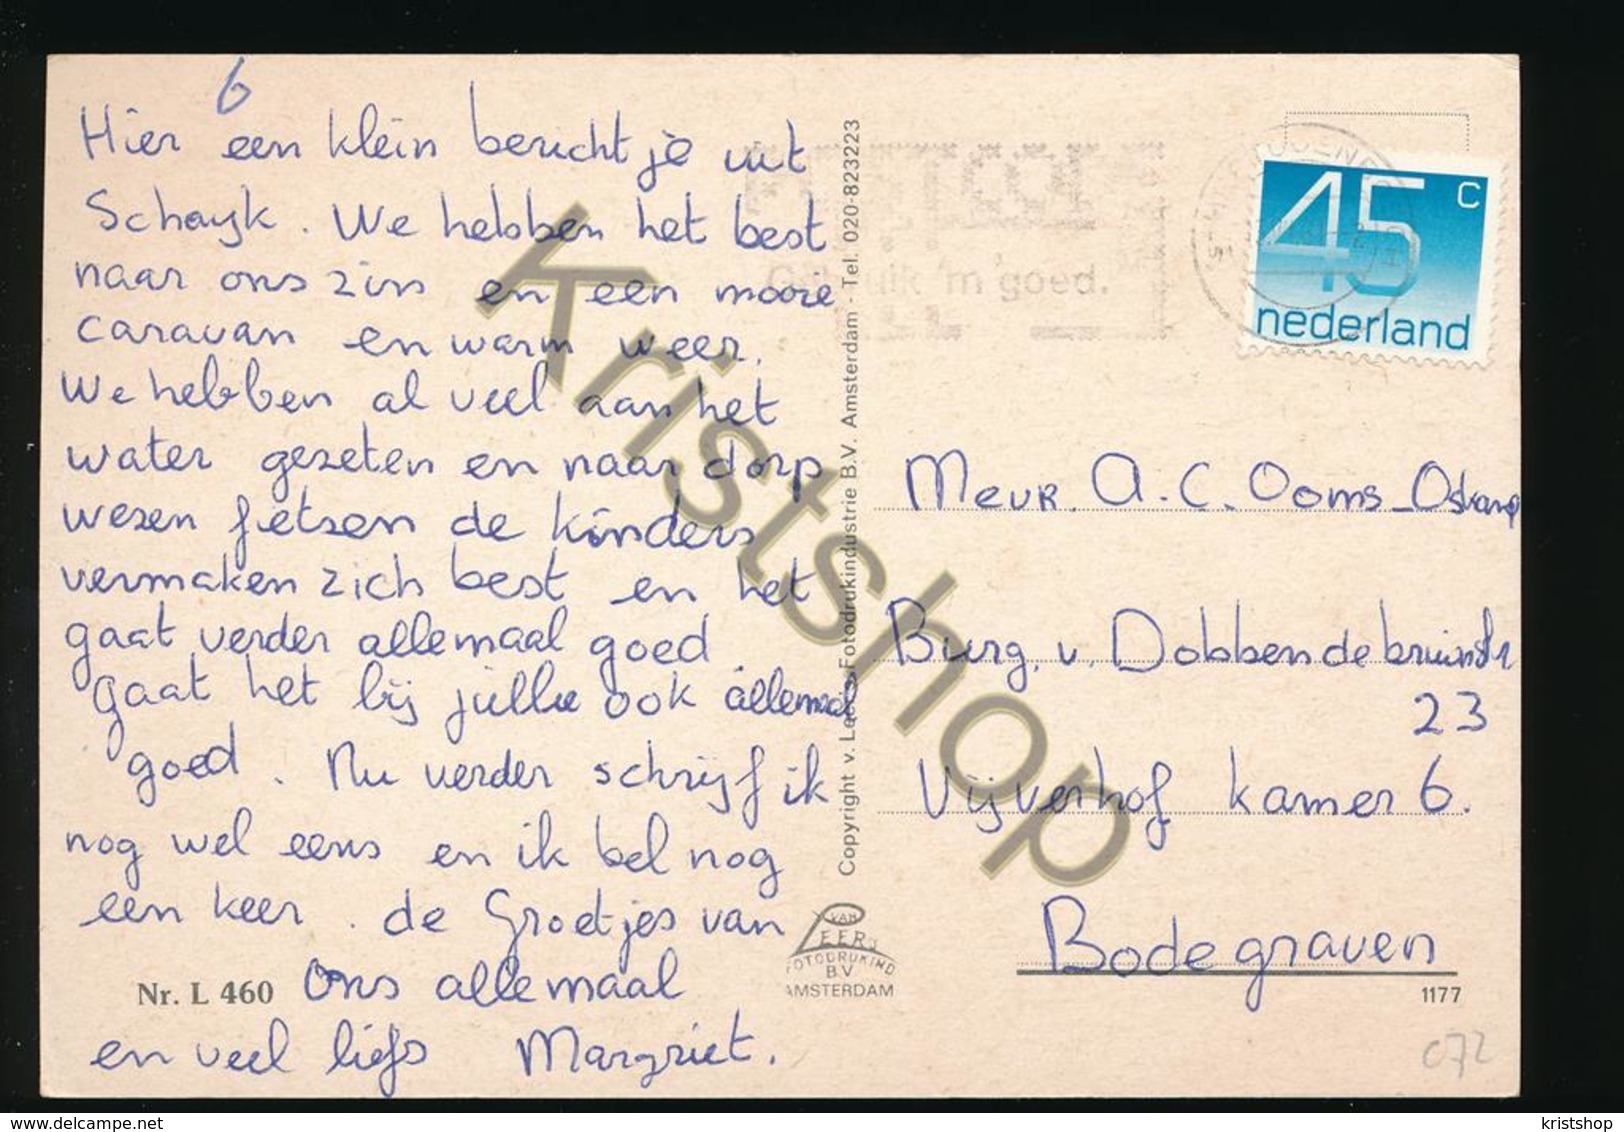 6
Hier een klein berichtje uit
Schayk. We hebben het best
naar ons zin en een mooie
caravan en warm weer.
We hebben al veel aan het
water gezeten en naar dorp
wezen fietsen de kinders
vermaken zich best en het
gaat verder allemaal goed.
Gaat het bij jullie ook allemaal
goed. Nu verder schrijf ik
nog wel eens en ik bel nog
een keer. de Groetjes van
Nr. L 460 Ons allemaal
en veel liefs Margriet.
Copyright v. Leer's Fotodrukindustrie B.V. Amsterdam - Tel. 020-823223
VAN
LEER'S
FOTODRUKIND
B.V.
AMSTERDAM
Gebruik 'm goed.
45 c
nederland
Mevr. A. C. Ooms-Oskamp
Burg. v. Dobbendebruinstr
23
Vijverhof kamer 6.
Bodegraven
1177
072
Kristshop
delcampe.net
kristshop